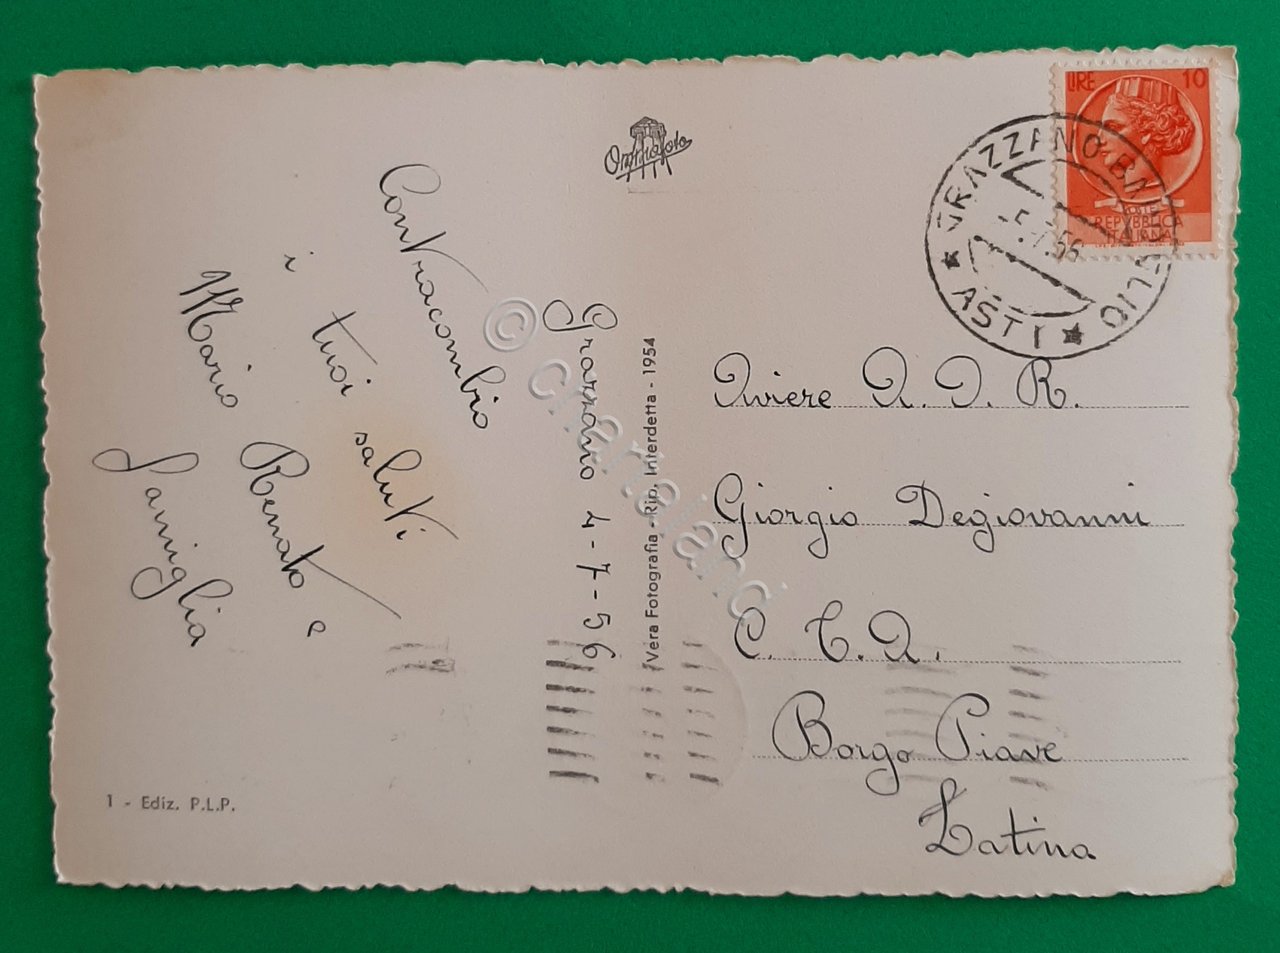 Contraccambio
i tuoi saluti
Mario Renato e
Famiglia
Grazzano 4-7-56
1 - Ediz. P.L.P.
Vera Fotografia - Rip. Interdetta - 1954
LIRE 10
POSTE
REPVBBLICA
ITALIANA
GRAZZANO BADOGLIO
★ ASTI ★
Aviere A.D.R.
Giorgio Degiovanni
C. T. A.
Borgo Piave
Latina
© chartaland